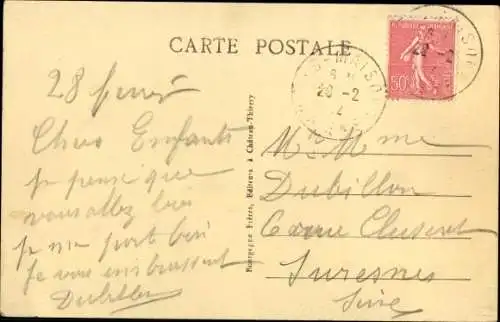 CARTE POSTALE
50c
28-2
28
Chers Enfants
je pense que
vous allez bien
je me port bien
Je vous embrassent
Dubillon
Bourgogne Frères, Editeurs à Château-Thierry
M et Mme
Dubillon
Suresnes
Seine